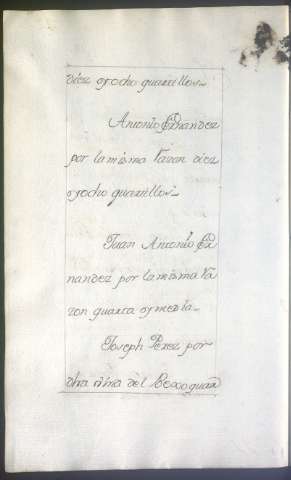 diez oyocho quartillos
Antonio
por la misma razon diez
oyocho quartillos
Juan Antonio
nandez por la misma ra
zon quarta oymedia
Joseph Perez por
dha del quar